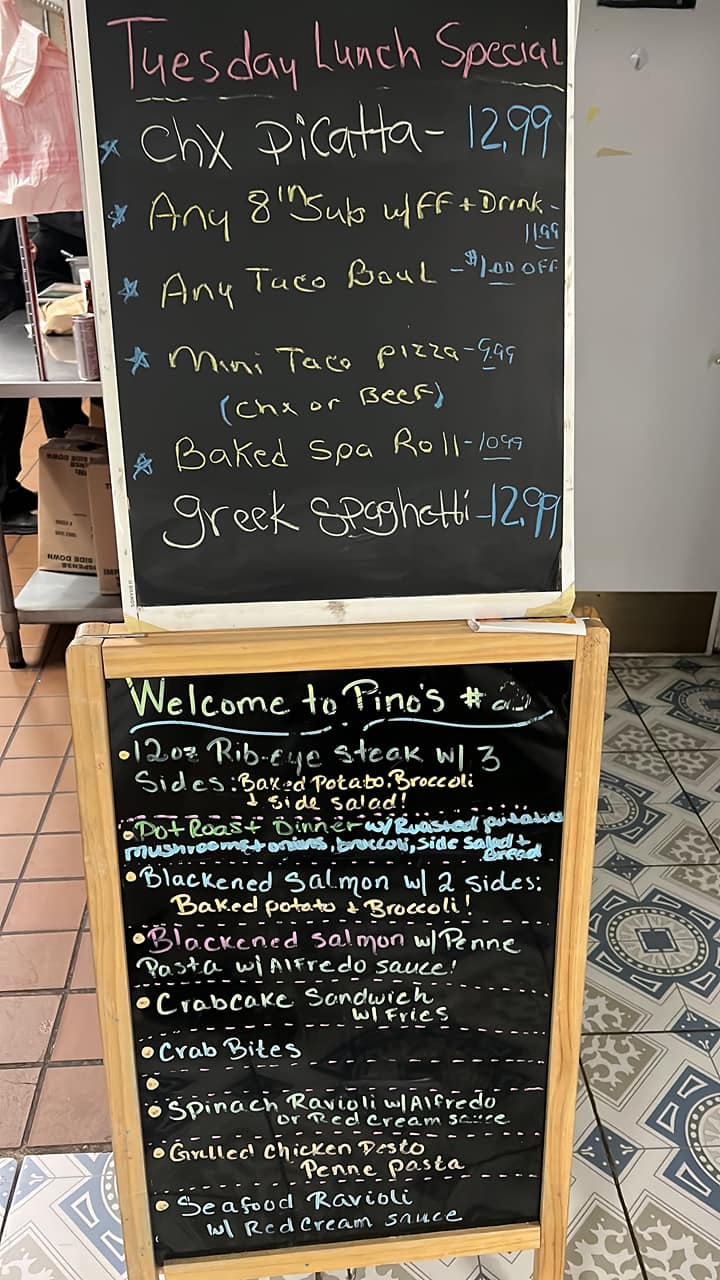 Tuesday Lunch Special
Chx Picatta- 12.99
Any 8"in Sub w/FF + Drink -
11.99
Any Taco Boul - $1.00 OFF
Mini Taco pizza - 9.99
(Chx or Beef)
Baked Spa Roll - 1099
greek Spaghetti - 12.99
Welcome to Pino's #2
12oz Rib-Eye Steak w/ 3
Sides: Baked Potato, Broccoli
& side salad!
Pot Roast Dinner w/Roasted potatoes
mushrooms + onions, broccoli, side salad +
Bread
Blackened Salmon w/ 2 sides:
Baked potato & Broccoli!
Blackened Salmon w/Penne
Pasta w/ Alfredo sauce!
Crabcake Sandwich
w/ Fries
Crab Bites
Spinach Ravioli w/Alfredo
or Red cream sauce
Grilled Chicken Pesto
Penne pasta
Seafood Ravioli
w/ Red cream sauce